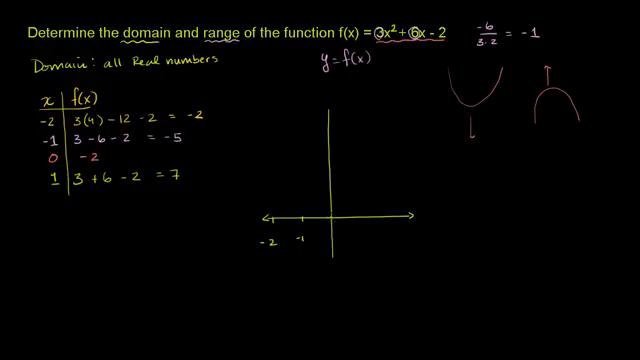 Determine the domain and range of the function f(x) = 3x² + 6x - 2
-6 / 3·2 = -1
Domain: all Real numbers
y = f(x)
x f(x)
-2 3(4) - 12 - 2 = -2
-1 3 - 6 - 2 = -5
0 -2
1 3 + 6 - 2 = 7
-2 -1